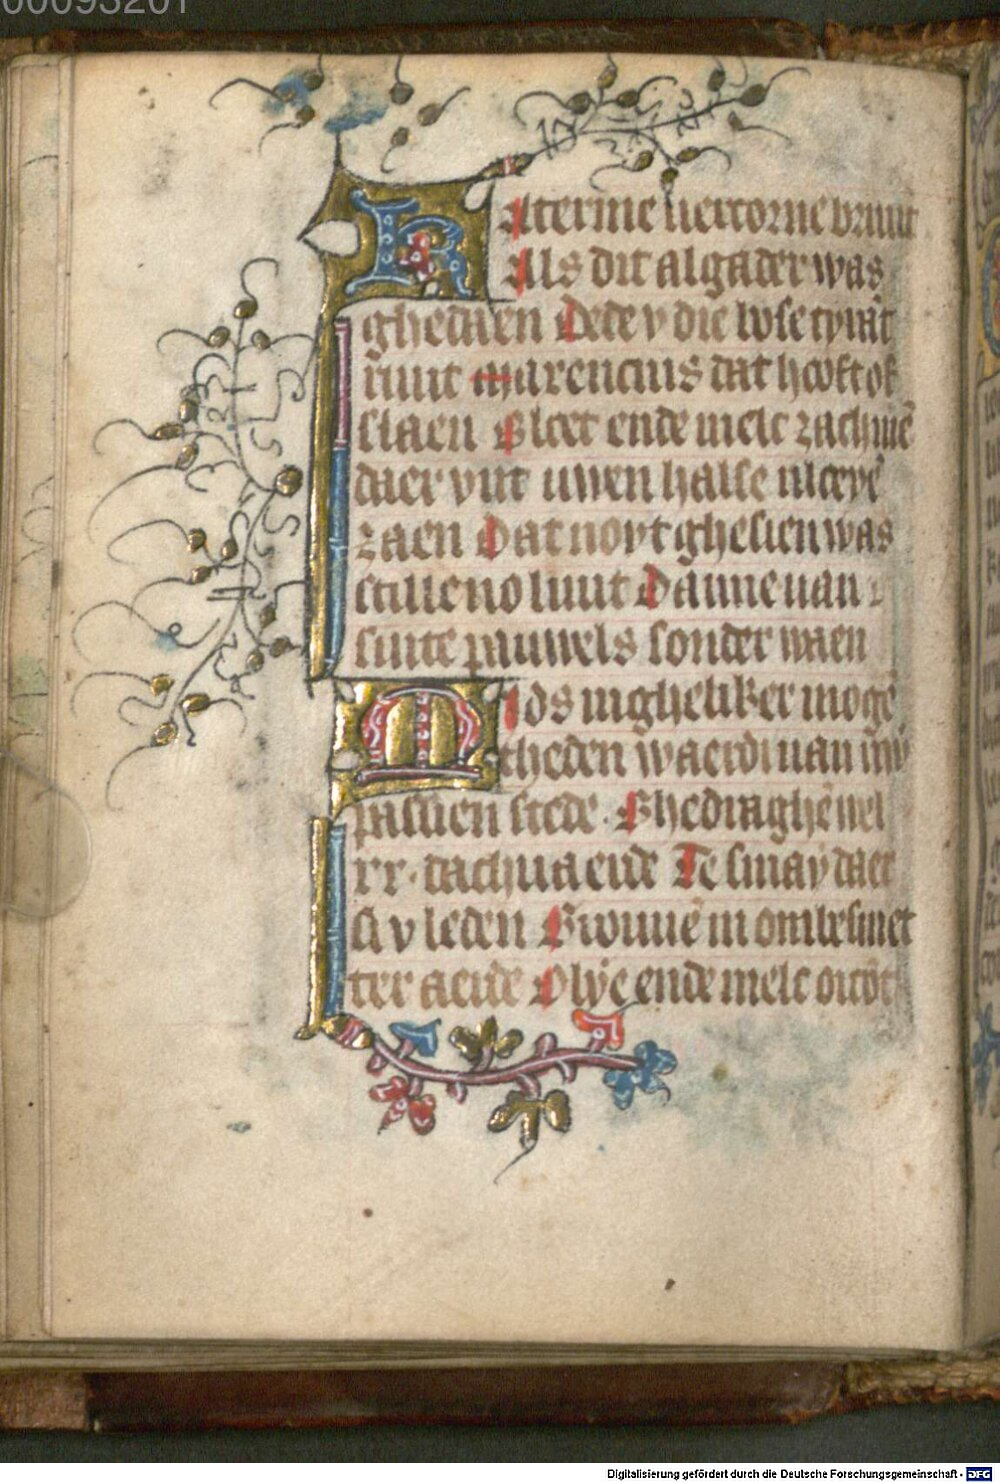 00093201
KAterine uercorne bruut
Als dit algader was
ghedaen Dede v die bose tyrāt
ruut Maxencius dat hooft of
slaen Bloet ende melc zachmē
daer vut uwen halse uloeyē
zaen Dat noyt ghesien was
stille no luut Danne van
sinte pauwels sonder waen
MIds uwgheliker moghē
theden waerdi van uwer
passien stede. Ghedraghē wel
xx. dachuaerde Te sinay daer
si v leden Gwonnē in onbesmet
ter aerde Olye ende melc
Digitalisierung gefördert durch die Deutsche Forschungsgemeinschaft - DFG